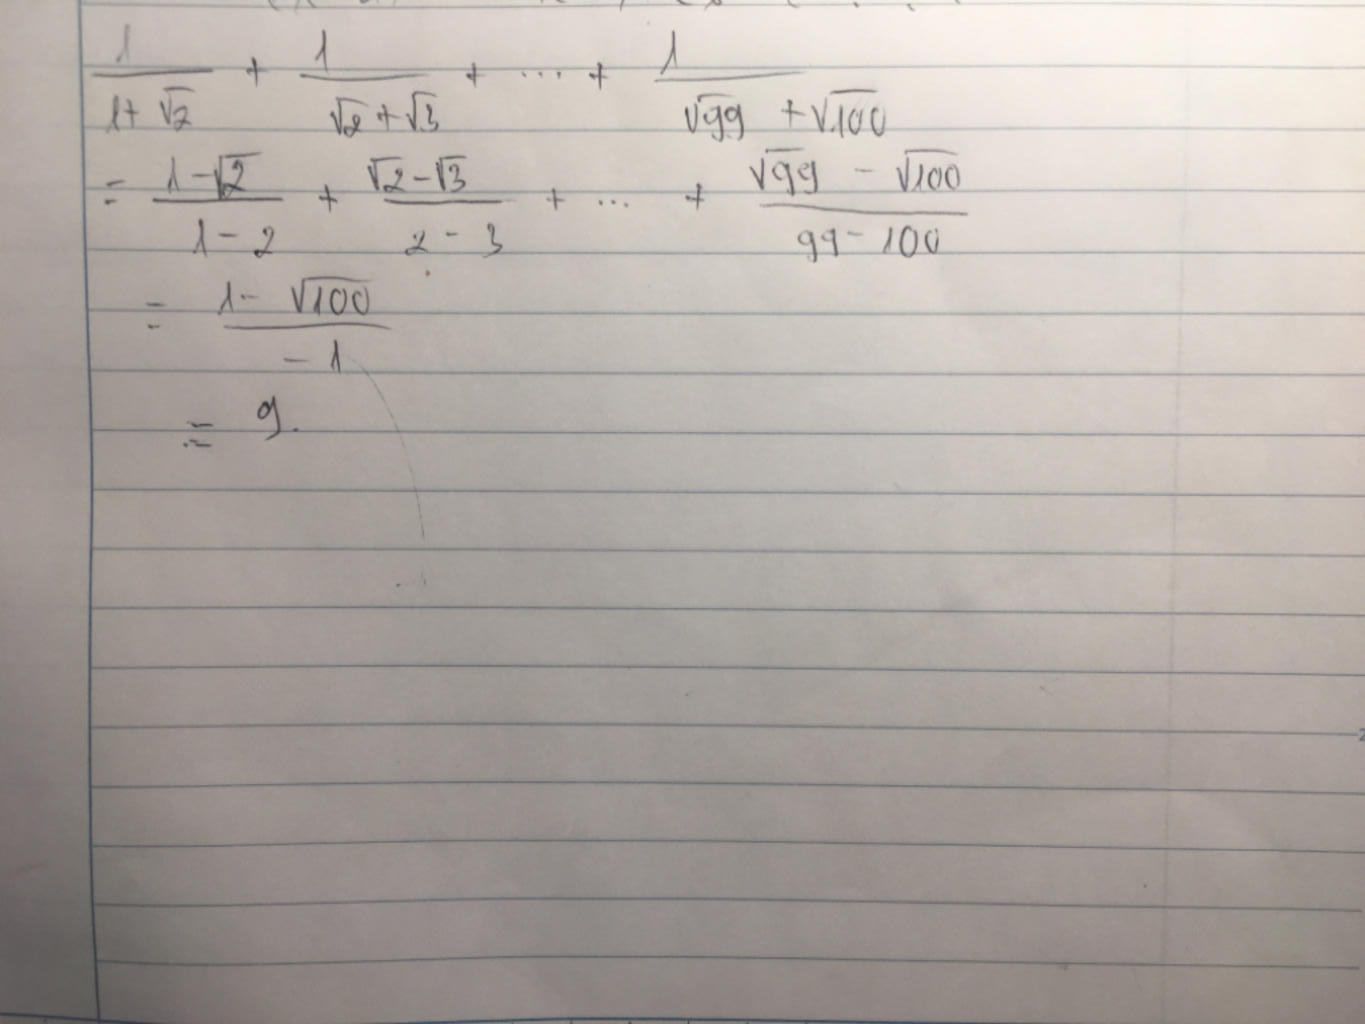 1/(1+√2) + 1/(√2+√3) + ... + 1/(√99 + √100)
= (1-√2)/(1-2) + (√2-√3)/(2-3) + ... + (√99 - √100)/(99-100)
= (1- √100)/(-1)
= 9.